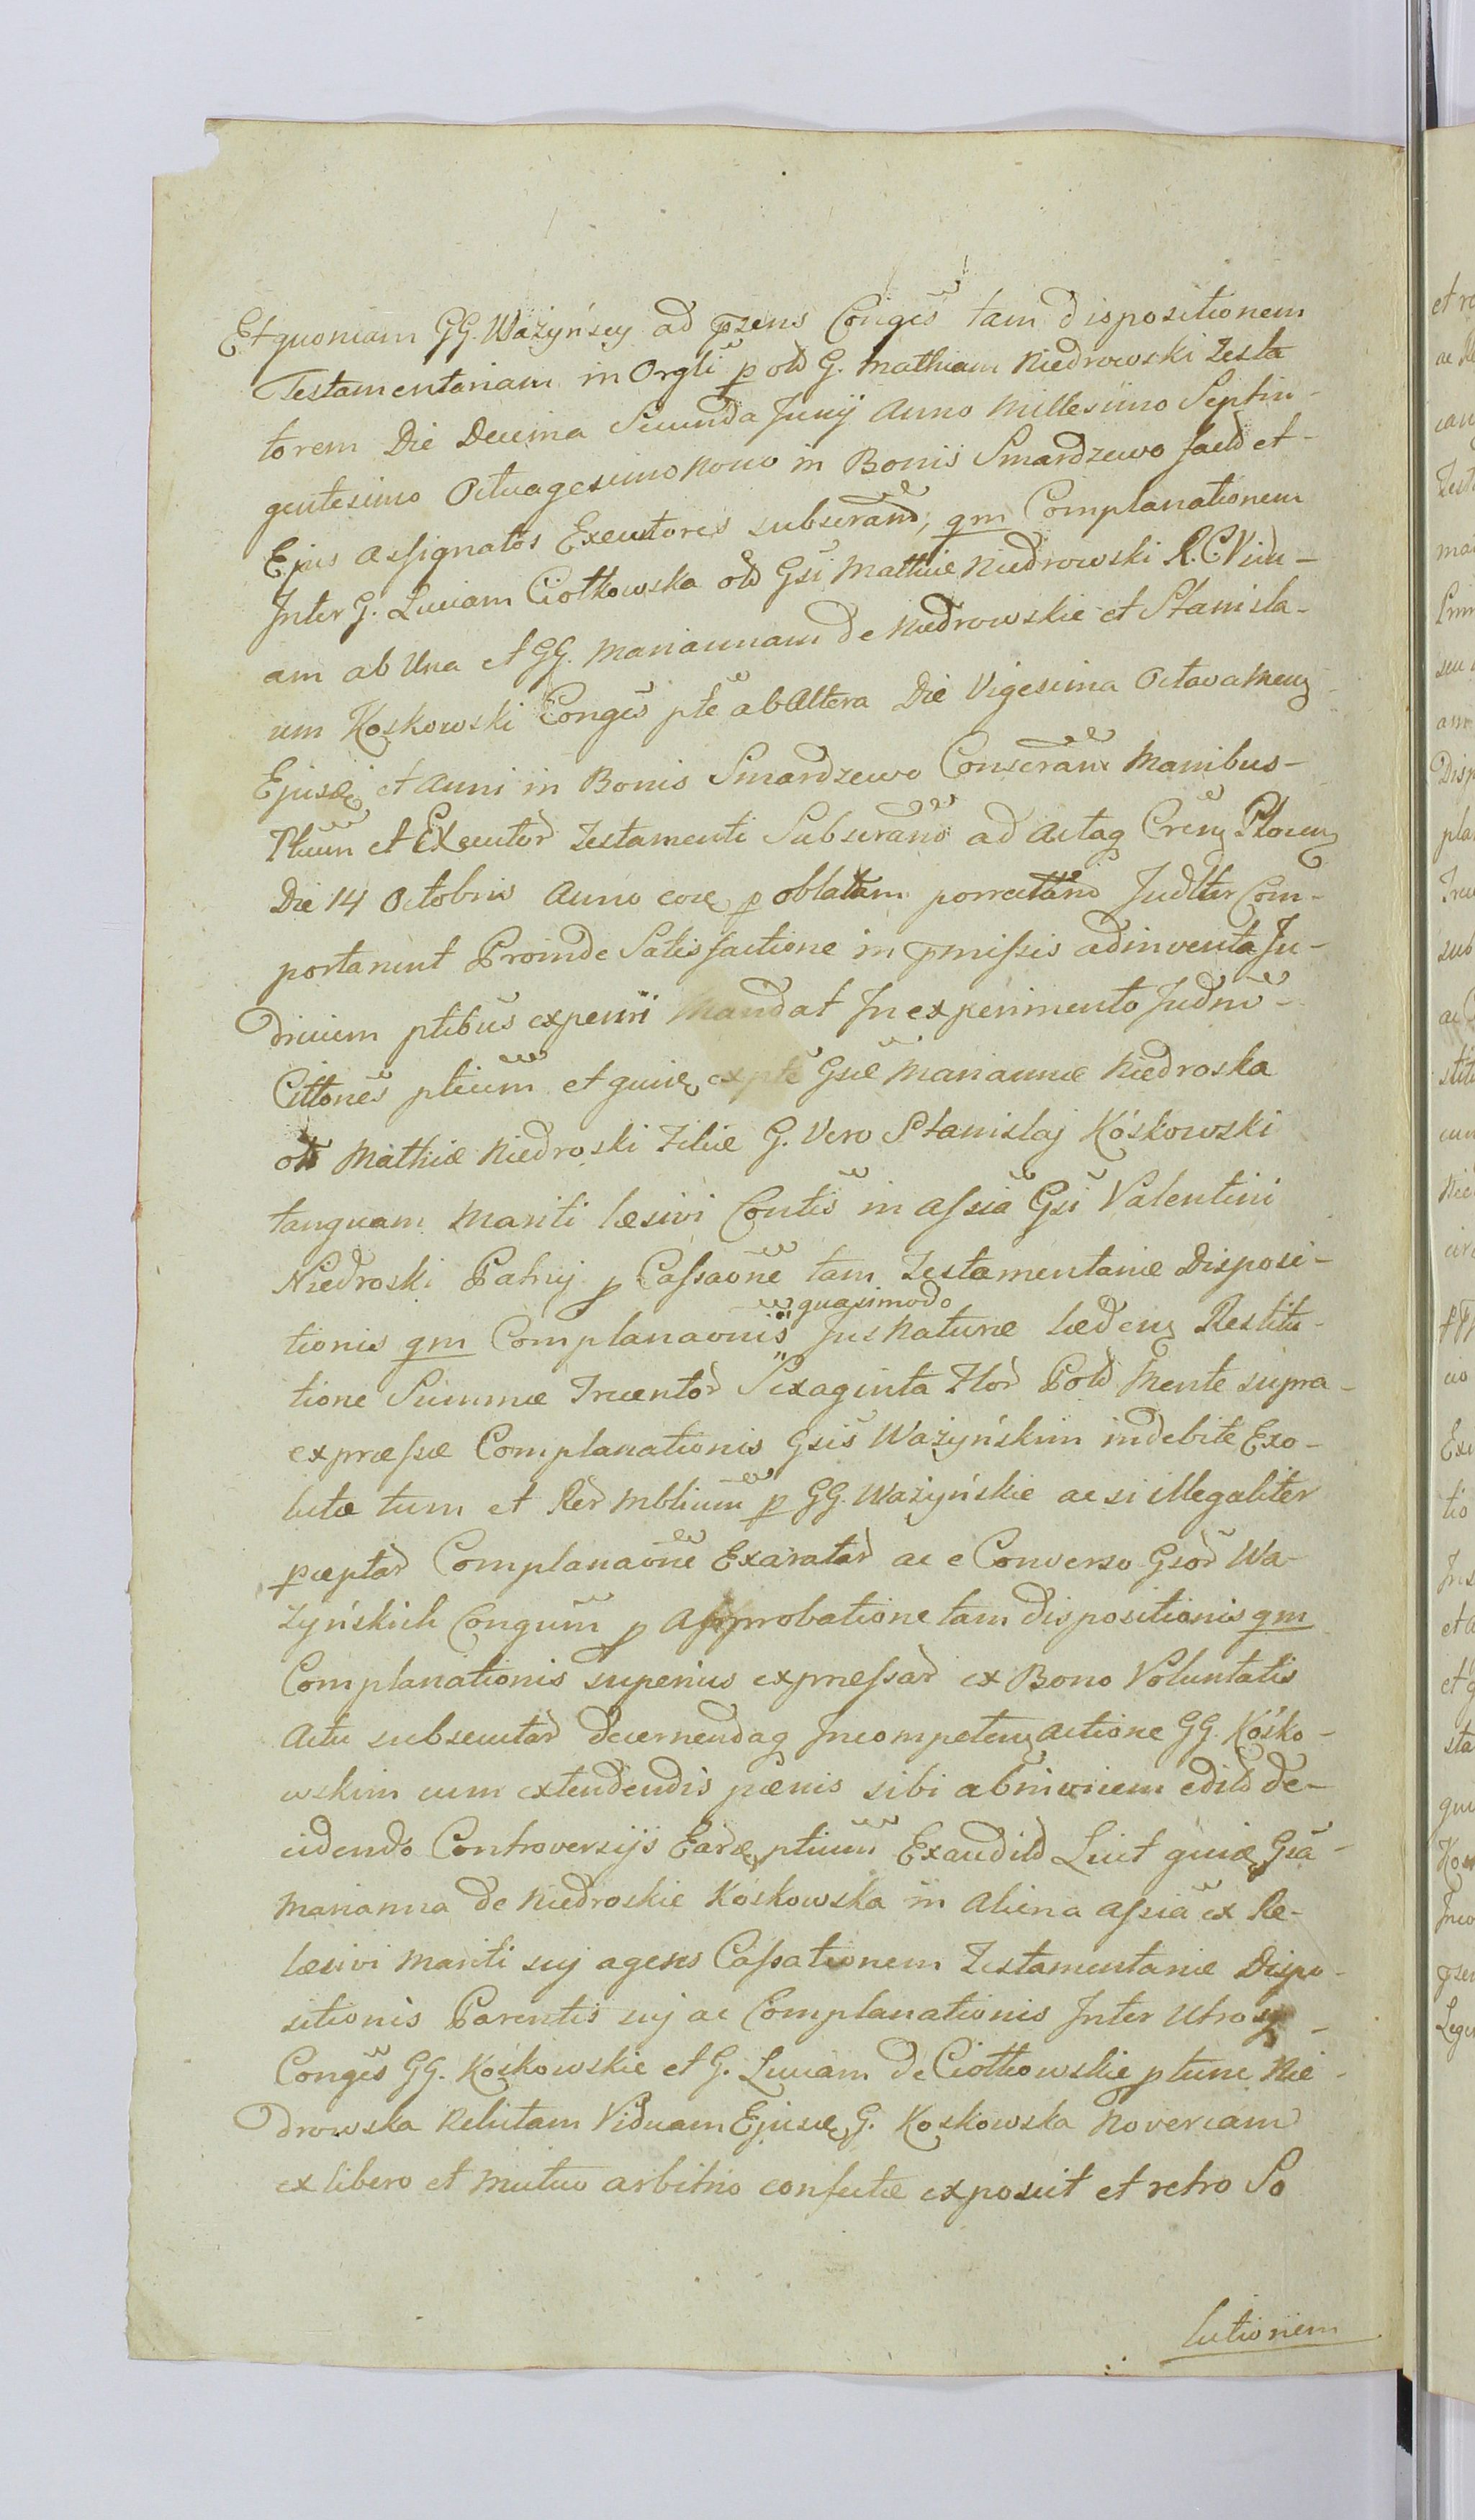 Et quoniam GG. Ważyńscy ad przens Conges tam dispositionem
Testamentariam in Orgli p old G. Mathiam Niedrowski Testa
torem Die Decima Secunda Junij Anno Millesimo Septin-
gentesimo Octuagesimo Nono in Bonis Smardzewo factd et-
Ejus assignatos Executores subscrand, qm Complanationem
Inter G. Luciam Ciołkowska old Gsi Mathiæ Niedrowski R. C. Vidu-
am ab Una et GG. Mariannam de Niedrowskie et Stanisla-
um Koskowski Conges pte ab Altera Die Vigesima Octava Mens
Ejusd et Anni in Bonis Smardzewo Conscram Manibus-
Ptium et Executord Testamenti Subscrand ad Actaq Crens Plocens
Die 14 Octobris Anno eod p oblatam porrectand Judlter Com-
portarunt Proinde Satisfactione in pmissis adinventa Ju-
dicium ptibus experiri Mandat In experimento Judni-
Cittones ptium et quid ex pte Gsæ Mariannæ Niedroska
old Mathiæ Niedroski Filiæ G. Vero Stanislaj Kóskowski
tanquam Mariti læsivi Contis in assia Gsi Valentini
Niedroski Patruj p Cassaone tam Testamentariæ Disposi-
quasimodo
tionis qm Complanaonis Jus Naturæ lædens Restitu-
tione Summæ Trecentod Sexaginta Flod Pold Mente supra-
expræssæ Complanationis Gsis Ważyńskim indebite Exo-
lutæ tum et Red Mblium p GG. Ważyńskie ac si illegaliter
pceptad Complanaone Exaratad ac e Converso Gsod Wa-
żyńskich Congum p Approbatione tam dispositionis qm
Complanationis superius expressad ex Bono Voluntatis
Actu subsecutad decernendaq Incompetens actione GG. Kósko-
wskim cum extendendis pænis sibi abinvicem edild de-
cidendo Controversijs Eard ptium Exaudild Licet quid Gsa-
Marianna de Niedroskie Kóskowska in Aliena assia ex Re-
læsivi Mariti suj agens Cassationem Testamentariæ Dispo-
sitionis Parentis suj ac Complanationis Inter Utrosq-
Conges GG. Koskowskie et G. Luciam de Ciołkowskie ptunc Nie-
drowska Relictam Viduam Ejusd G. Koskowska Novercam
ex libero et Mutuo arbitrio confectæ exposcit et retro So
lutionem